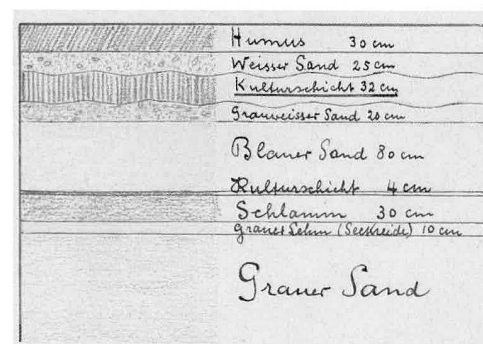 Humus 30 cm
Weisser Sand 25 cm
Kulturschicht 32 cm
Grauweisser Sand 20 cm
Blauer Sand 80 cm
Kulturschicht 4 cm
Schlamm 30 cm
Grauer Lehm (Seekreide) 10 cm
Grauer Sand